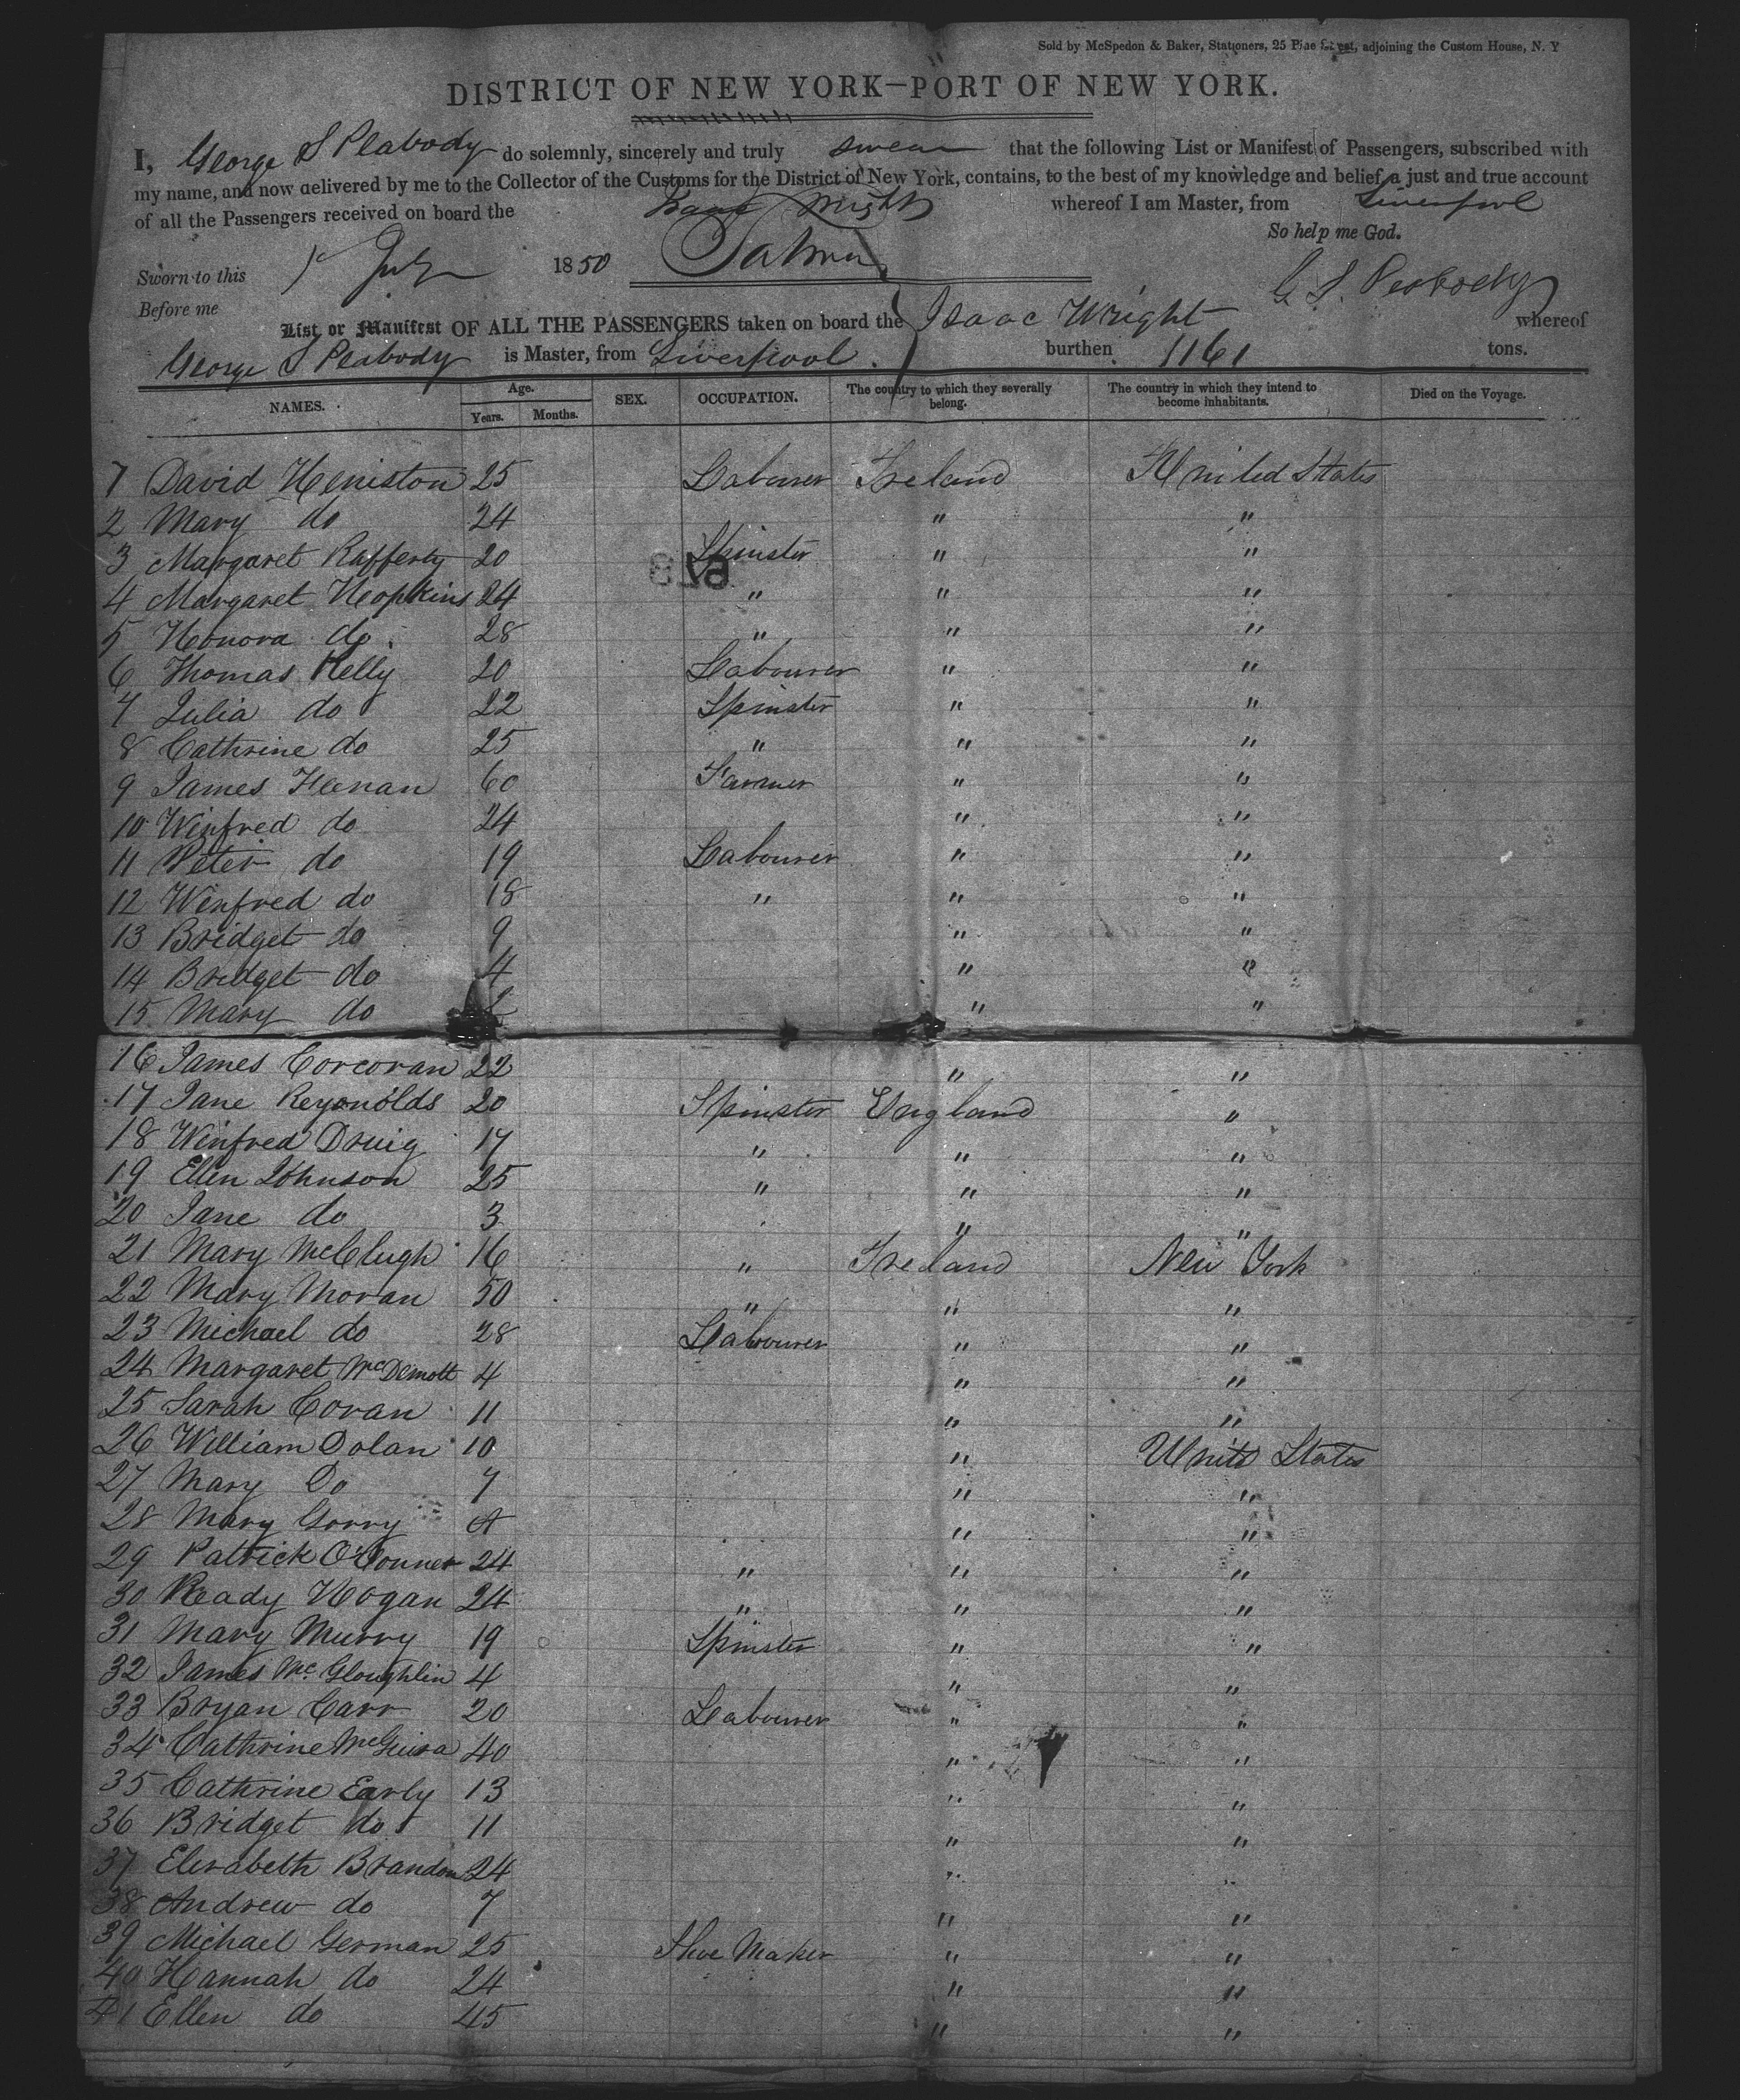 Sold by McSpedon & Baker, Stationers, 25 Pine Street, adjoining the Custom House, N. Y
DISTRICT OF NEW YORK—PORT OF NEW YORK.
I, George S Peabody do solemnly, sincerely and truly swear that the following List or Manifest of Passengers, subscribed with
my name, and now delivered by me to the Collector of the Customs for the District of New York, contains, to the best of my knowledge and belief a just and true account
of all the Passengers received on board the Isaac Wright whereof I am Master, from Liverpool
So help me God.
Sworn to this 1 July 1850
G S. Peabody
Before me
List or Manifest OF ALL THE PASSENGERS taken on board the Isaac Wright whereof
George S Peabody is Master, from Liverpool. burthen 1161 tons.
NAMES. Age. Years. Months. SEX. OCCUPATION. The country to which they severally belong. The country in which they intend to become inhabitants. Died on the Voyage.
1 David Heniston 25 Labourer Ireland United States
2 Mary do 24 " "
3 Margaret Rafferty 20 Spinster " "
4 Margaret Hopkins 24 " " "
5 Honora do. 28 " " "
6 Thomas Kelly 20 Labourer " "
7 Julia do 22 Spinster " "
8 Cathrine do 25 " " "
9 James Heenan 60 Farmer " "
10 Winfred do 24 " "
11 Peter do 19 Labourer " "
12 Winfred do 18 " " "
13 Bridget do 9 " "
14 Bridget do 4 " "
15 Mary do " "
16 James Corcoran 22 " "
17 Jane Reyonolds 20 Spinster England "
18 Winfred 17 " " "
19 Ellen Johnson 25 " " "
20 Jane do 3 " "
21 Mary McClugh 16 " Ireland New York
22 Mary Moran 50 " " "
23 Michael do 28 Labourer " "
24 Margaret McDemott 4 " "
25 Sarah Coran 11 " "
26 William Dolan 10 " United States
27 Mary Do 7 " "
28 Mary Gorry " "
29 Patrick O'Conner 24 " " "
30 Ready Hogan 24 " " "
31 Mary Murry 19 Spinster " "
32 James McGloughlin 4 " "
33 Bryan Carr 20 Labourer " "
34 Cathrine 40 " "
35 Cathrine Early 13 " "
36 Bridget do 11 " "
37 Elizabeth Brandon 24 " "
38 Andrew do 7 " "
39 Michael German 25 Shoe Maker " "
40 Hannah do 24 " "
41 Ellen do 45 " "